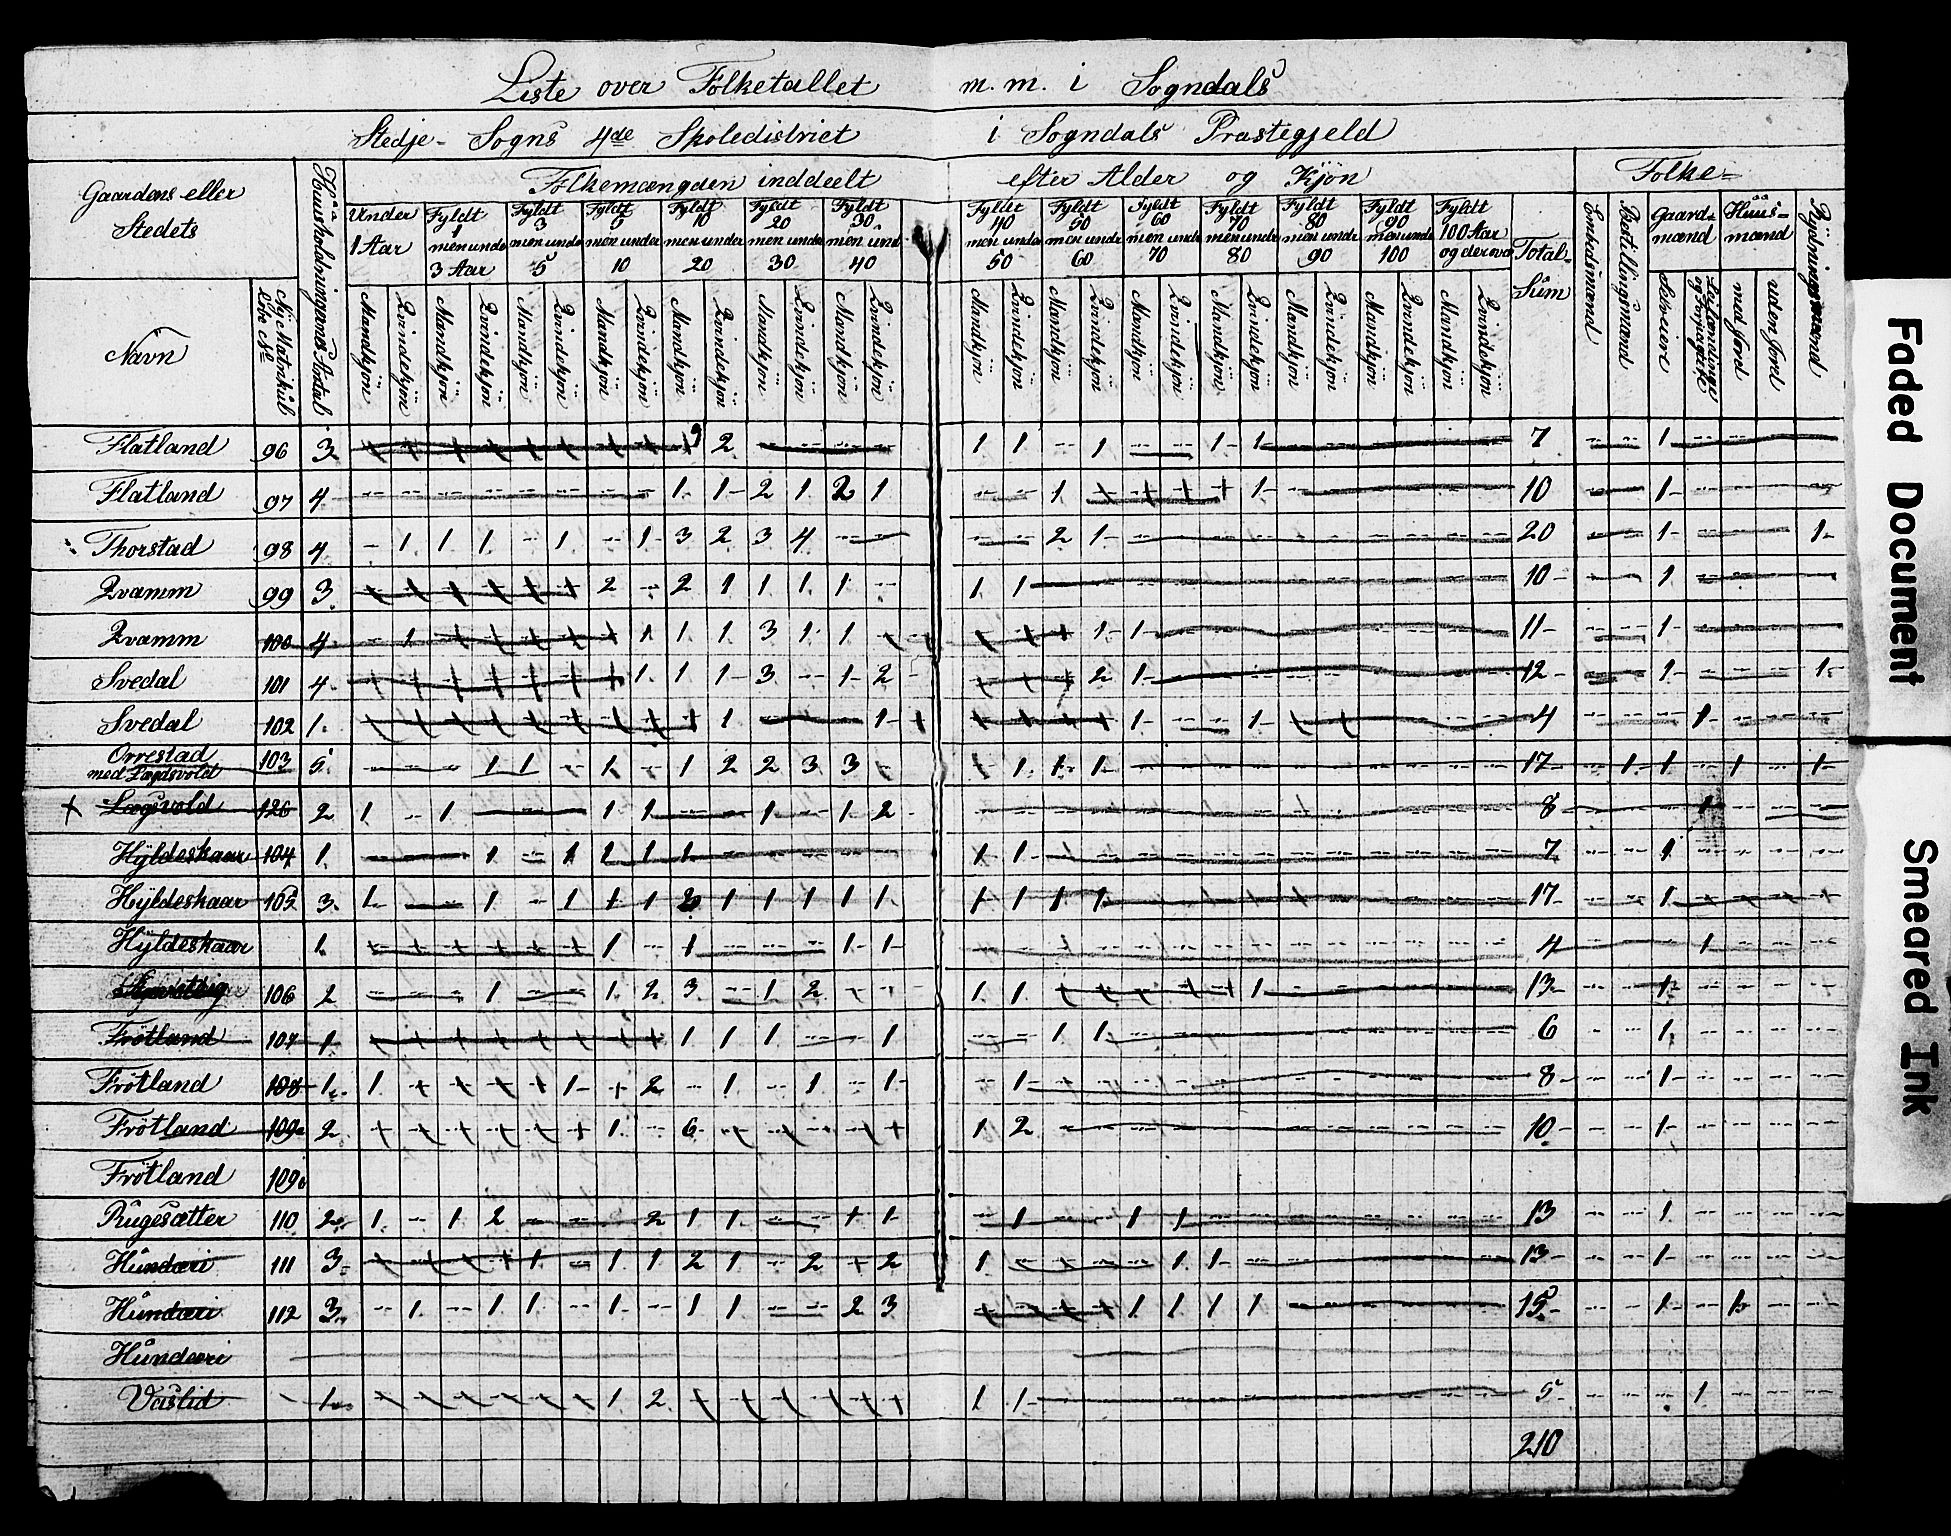 Liste over Folketallet m. m. i Sogndals
Stedje- Sogns 4de Skoledistrict i Sogndals Præstegjeld
Gaardens eller Stedets
Navn
Nye Matrikül Löbe No
Huusholdningernes Antal
Folkemængden inddeelt efter Alder og Kjön
Folke-
Under 1 Aar
Fyldt 1 men under 3 Aar
Fyldt 3 men under 5
Fyldt 5 men under 10
Fyldt 10 men under 20
Fyldt 20 men under 30
Fyldt 30 men und 40
Fyldt 40 men under 50
Fyldt 50 men under 60
Fyldt 60 men under 70
Fyldt 70 men under 80
Fyldt 80 men under 90
Fyldt 90 men under 100
Fyldt 100 Aar og derover
Total-Süm
Embedsmænd
Bestillingsmænd
Gaard-mænd
Selveiere
Huus-mænd
med Jord
uden Jord
Rydningsmænd
Mandkjön Qvindekjön Mandkjön Qvindekjön Mandkjön Qvindekjön Mandkjön Qvindekjön Mandkjön Qvindekjön Mandkjön Qvindekjön Mandkjön Qvindekjön
Mandkjön Qvindekjön Mandkjön Qvindekjön Mandkjön Qvindekjön Mandkjön Qvindekjön Mandkjön Qvindekjön Mandkjön Qvindekjön Mandkjön Qvindekjön
Flatland 96 3 2 1 1 1 1 1 7 1
Flatland 97 4 1 1 2 1 2 1 1 1 10 1
Thorstad 98 4 1 1 1 1 1 3 2 3 4 2 1 20 1 1
Qvamm 99 3 2 2 1 1 1 1 1 1 10 1
Qvamm 100 4 1 1 1 1 3 1 1 1 1 11 1
Svedal 101 4 1 1 1 3 1 2 2 1 12 1 1
Svedal 102 1 1 1 1 1 4 1
Orrestad med 103 5 1 1 1 1 2 2 3 3 1 1 1 17 1 1 1 1
Lægsvold 126 2 1 1 1 1 1 1 2 8 1
Hÿldeskaar 104 1 1 1 1 1 1 1 1 7 1
Hÿldeskaar 105 3 1 1 1 1 1 2 1 1 1 1 1 1 1 1 1 17 1
Hÿldeskaar 1 1 1 1 1 4 1
106 2 1 1 2 3 1 2 1 1 1 13 1
Frötland 107 1 1 1 1 1 1 1 6 1
Frötland 108 1 1 1 2 1 1 1 1 8 1
Frötland 109a 2 1 6 1 2 10 1
Frötland 109b
Rugesætter 110 2 1 1 2 2 1 1 1 1 1 1 1 13 1
Hündæri 111 3 1 1 1 2 1 2 2 1 1 1 13 1
Hündæri 112 3 1 1 1 1 1 1 2 3 1 1 1 1 15 1 1
Hündæri
Vaslid 1 1 2 1 1 5 1
210
Faded Document
Smeared Ink